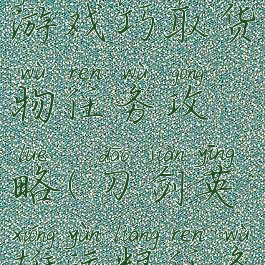 游戏巧取货
wù rèn wù gōng
物任务攻
lüè dāo jiàn yīng
略(刀剑英
xióng yùn liáng rèn wù
雄运粮